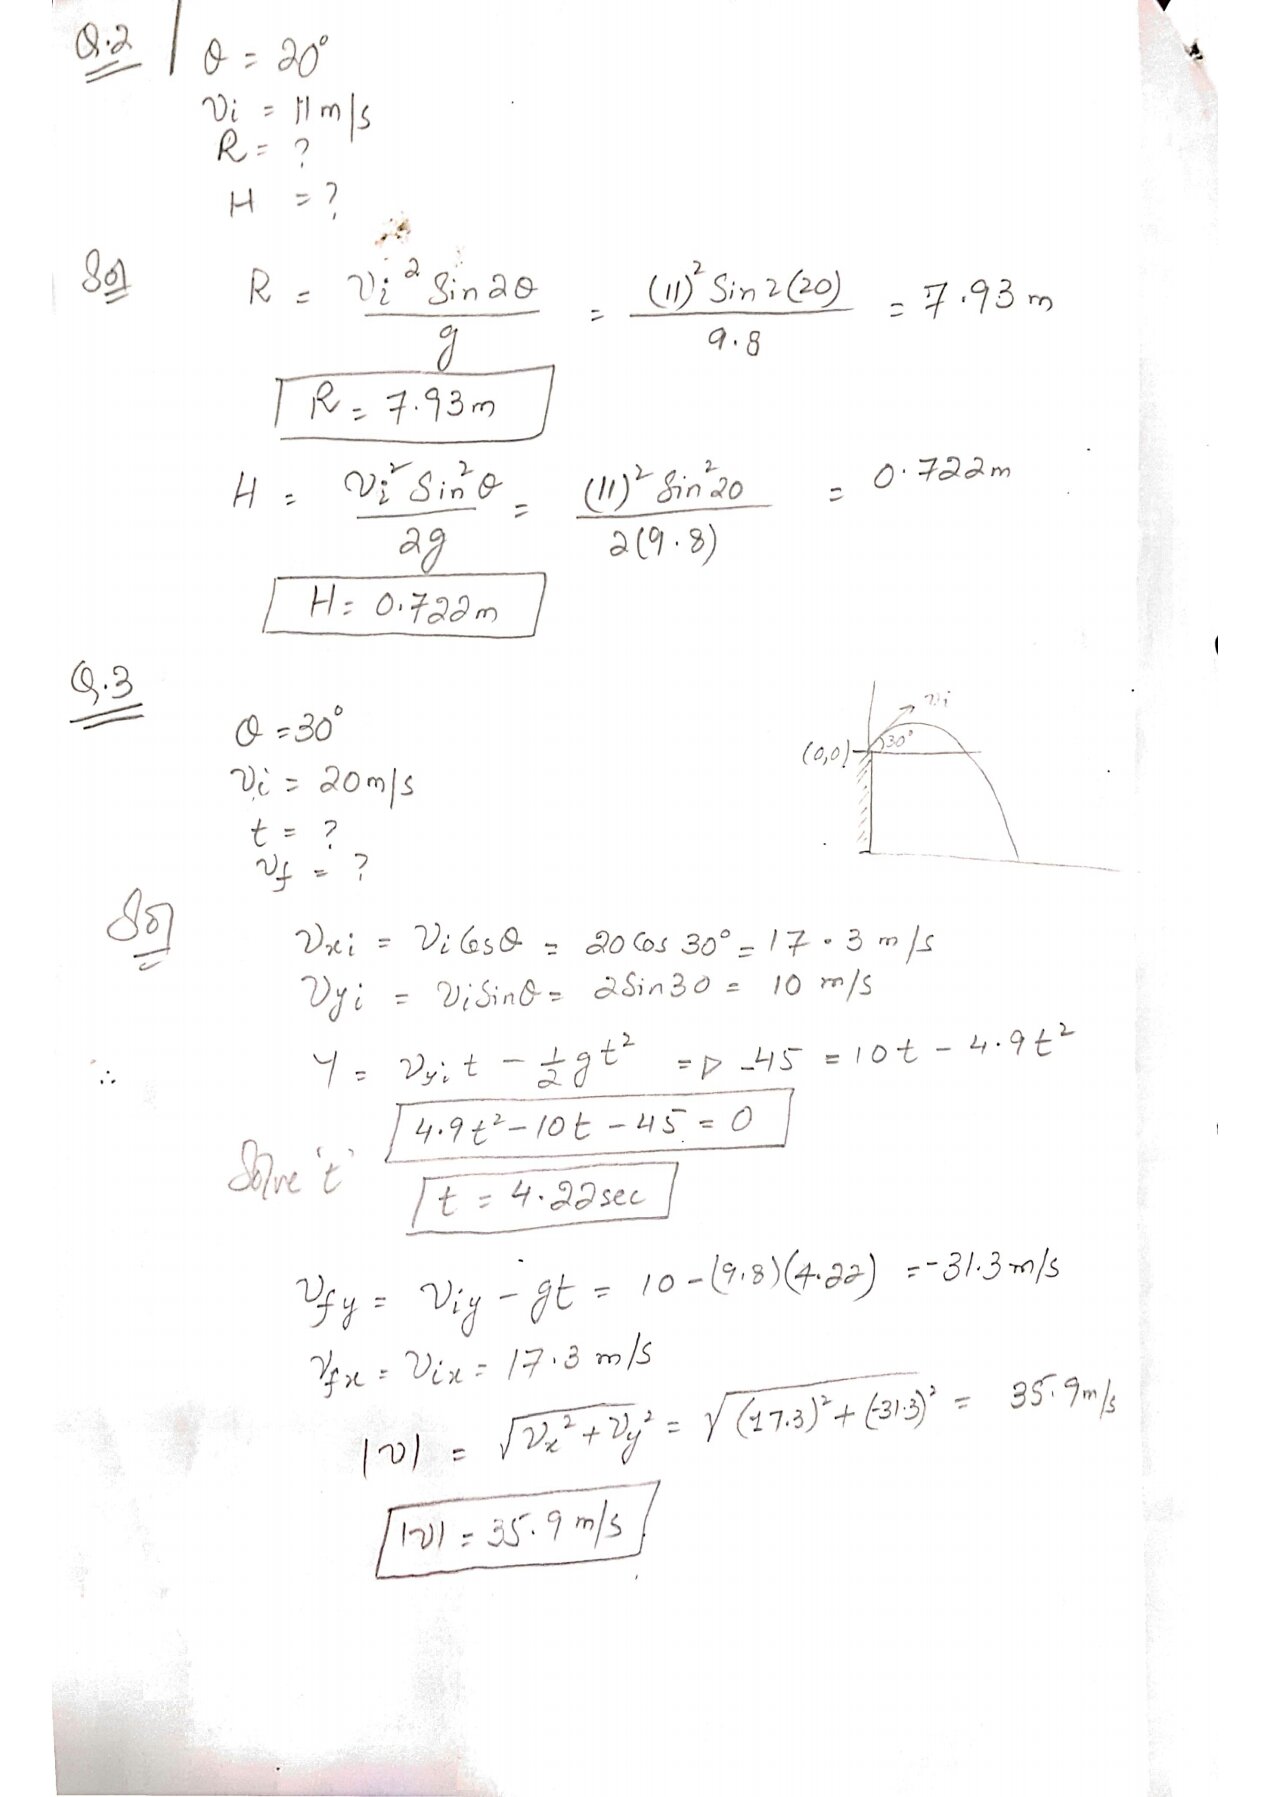 Q.2
θ = 20°
vi = 11 m/s
R = ?
H = ?
Sol R = vi² Sin2θ / g = (11)² Sin 2(20) / 9.8 = 7.93 m
R = 7.93 m
H = vi² Sin²θ / 2g = (11)² Sin²20 / 2(9.8) = 0.722 m
H = 0.722 m
Q.3
θ = 30°
vi = 20 m/s
t = ?
vf = ?
vi
(0,0) 30°
Sol
Vxi = Vi Cosθ = 20 Cos 30° = 17.3 m/s
Vyi = Vi Sinθ = 2Sin30 = 10 m/s
∴ Y = Vyi t - ½ g t² => -45 = 10t - 4.9t²
4.9t² - 10t - 45 = 0
Solve 't'
t = 4.22 sec
Vfy = Viy - gt = 10 - (9.8)(4.22) = -31.3 m/s
Vfx = Vix = 17.3 m/s
|v| = √(Vx² + Vy²) = √((17.3)² + (-31.3)²) = 35.9 m/s
|v| = 35.9 m/s